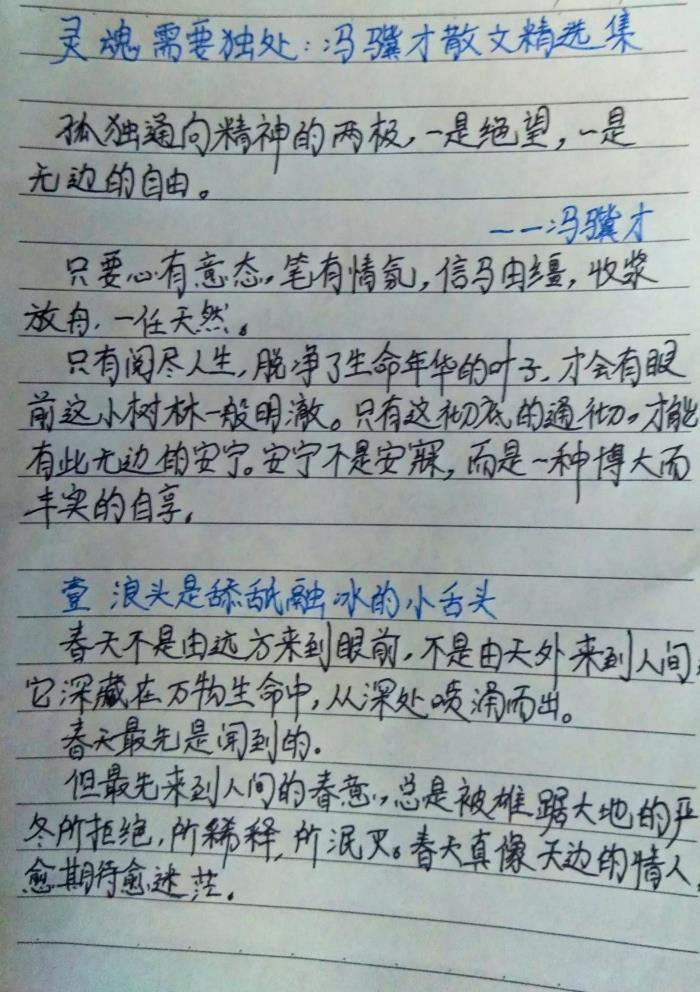 灵魂需要独处：冯骥才散文精选集
孤独通向精神的两极，一是绝望，一是
无边的自由。
——冯骥才
只要心有意态，笔有情氛，信马由缰，收桨
放舟，一任天然。
只有阅尽人生，脱净了生命年华的叶子，才会有眼
前这小树林一般明澈。只有这彻底的通彻，才能
有此无边的安宁。安宁不是安寐，而是一种博大而
丰实的自享。
壹 浪头是舔舐融冰的小舌头
春天不是由远方来到眼前，不是由天外来到人间，
它深藏在万物生命中，从深处喷涌而出。
春天最先是闻到的。
但最先来到人间的春意，总是被雄踞大地的严
冬所拒绝，所稀释，所泯灭。春天真像天边的情人，
愈期待愈迷茫。